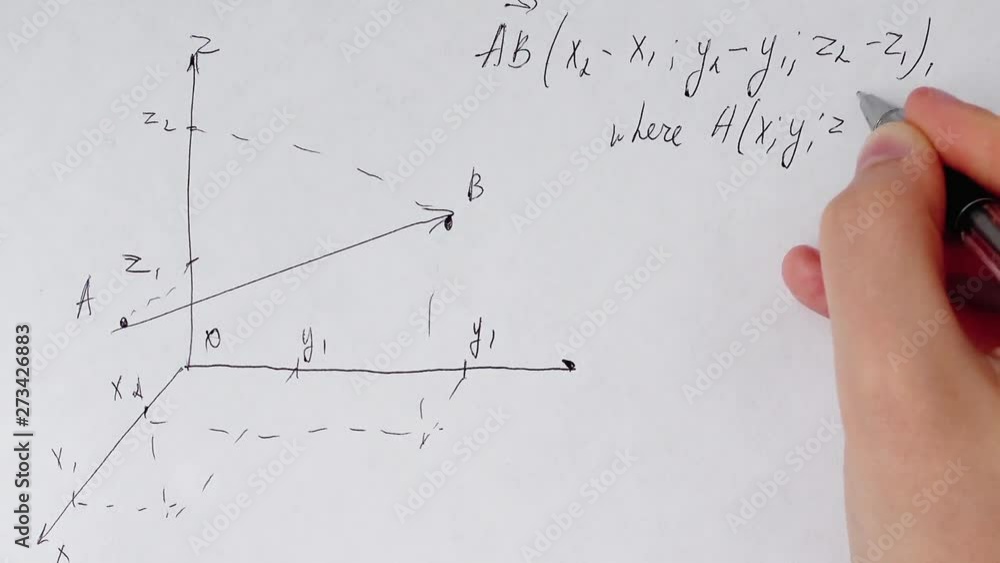 AB(x₂ - x₁; y₂ - y₁; z₂ - z₁),
where A(x; y; z
z
z₂
B
z₁
A
y₁
y₁
x₂
x₁
x
Adobe Stock | #273426883